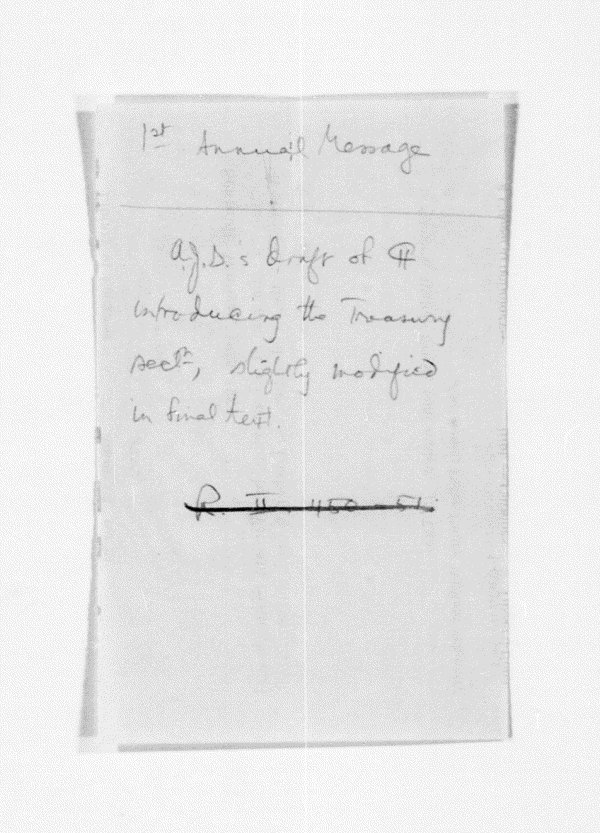 1st Annual Message
A.J.D.'s draft of ¶
introducing the Treasury
sectn, slightly modified
in final text.
R. II. 450-51.